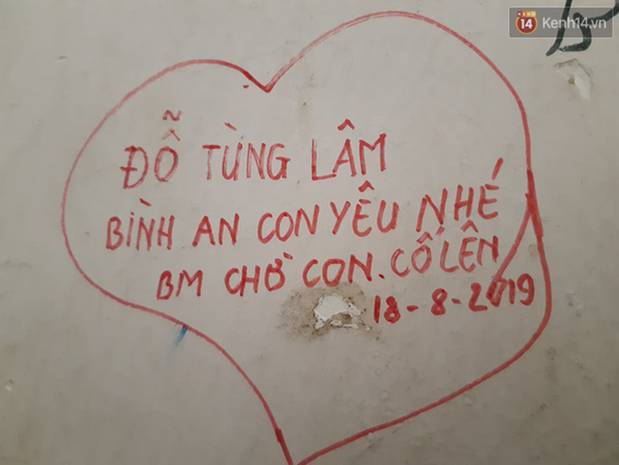 14 Kenh14.vn
ĐỖ TÙNG LÂM
BÌNH AN CON YÊU NHÉ
BM CHỜ CON. CỐ LÊN
18-8-2019